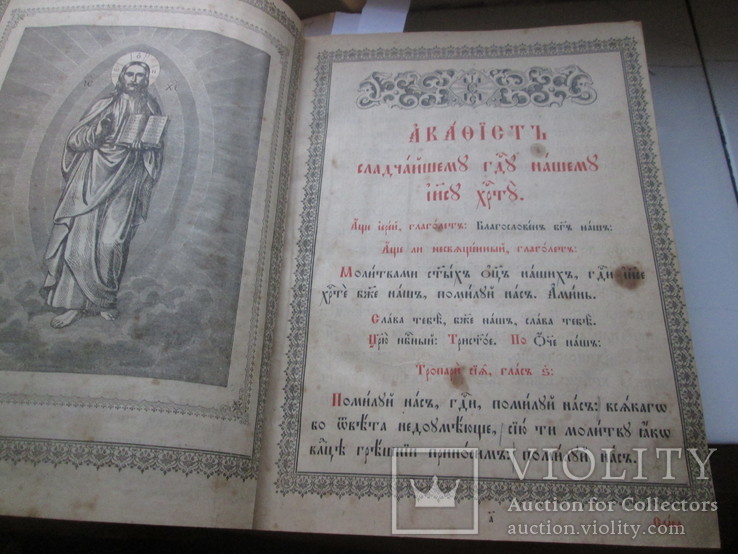 І҃С Х҃С
А҆ка́ѳїстъ
сладча́йшему гдⷭ҇ꙋ на́шемꙋ
і҆и҃сꙋ хрⷭ҇тꙋ̀.
А҆́ще і҆ере́й, глаго́летъ: Благослове́нъ бг҃ъ на́шъ:
А҆́ще ли несвѧще́нный, глаго́летъ:
Моли́твами ст҃ы́хъ ѻ҆тє́цъ на́шихъ, гдⷭ҇и і҆и҃се
хрⷭ҇тѐ бж҃е на́шъ, поми́лꙋй на́съ. А҆ми́нь.
Сла́ва тебѣ̀, бж҃е на́шъ, сла́ва тебѣ̀.
Цр҃ю̀ нбⷭ҇ный: Трист҃о́е. По Ѻ҆́ч҃е на́шъ:
Тропарѝ сїѧ̑, гла́съ ѕ҃:
Поми́лꙋй на́съ, гдⷭ҇и, поми́лꙋй на́съ: всѧ́кагѡ
бо ѿвѣ́та недоꙋмѣ́юще, сїю́ ти моли́твꙋ ꙗ҆́кѡ
влⷣцѣ грѣ́шнїи прино́симъ, поми́лꙋй на́съ.
а҃ Сла́ва
VIOLITY
Auction for Collectors
auction.violity.com